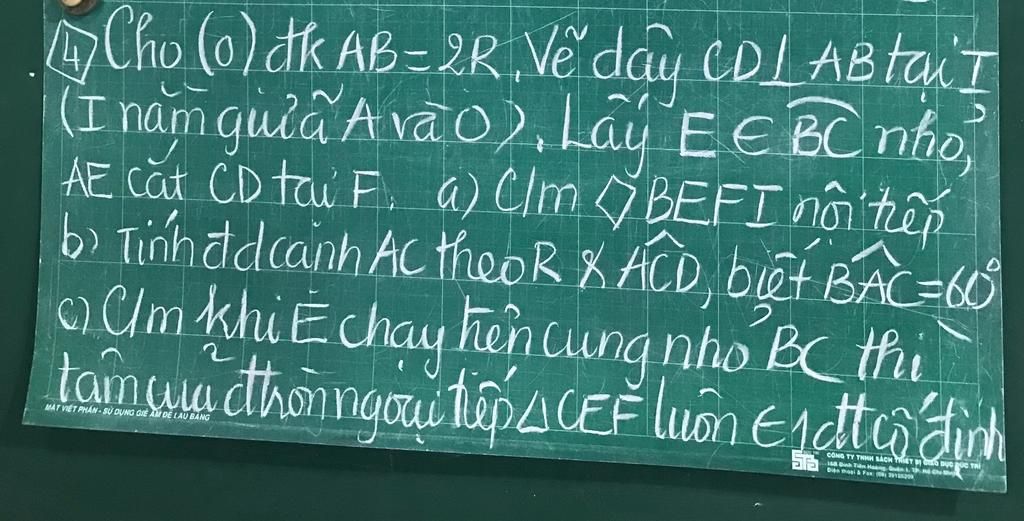 4 Cho (O) đk AB = 2R. Vẽ dây CD⊥AB tại I
(I nằm giữa A và O). Lấy E ∈ BC nhỏ,
AE cắt CD tại F. a) C/m ◇BEFI nội tiếp
b) Tính đd cạnh AC theo R & ACD, biết BAC = 60°
c) C/m khi E chạy trên cung nhỏ BC thì
tâm của đtròn ngoại tiếp △CEF luôn ∈ 1 đt cố định
MẶT VIẾT PHẤN - SỬ DỤNG GIẺ ẨM ĐỂ LAU BẢNG
CÔNG TY TNHH SÁCH THIẾT BỊ GIÁO DỤC ĐỨC TRÍ
16B Đinh Tiên Hoàng, Quận 1, TP. Hồ Chí Minh
Điện thoại & Fax: (08)